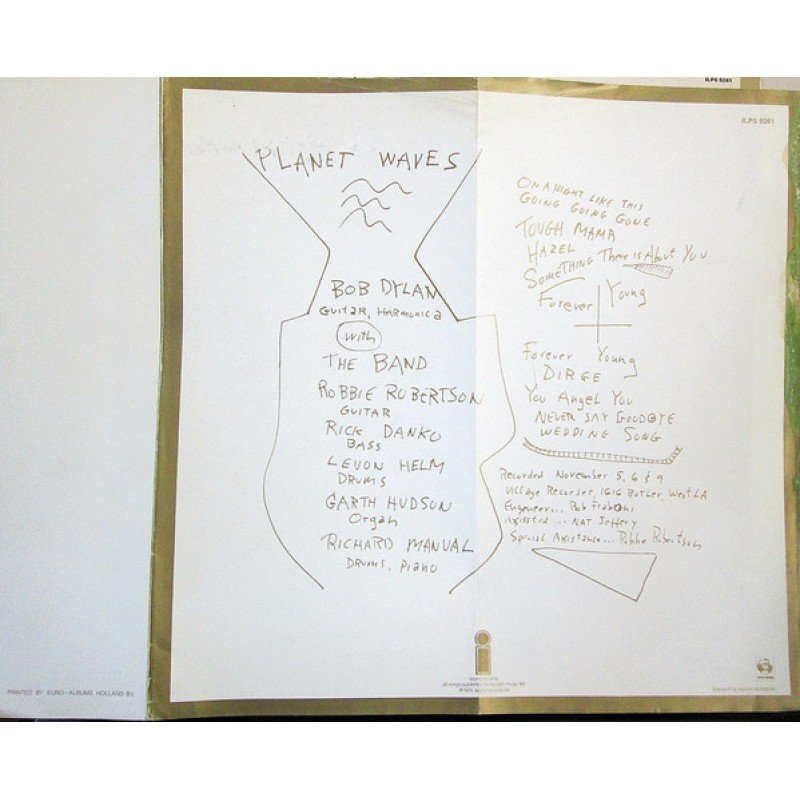 ILPS 9261
ILPS 9261
PLANET WAVES
BOB DYLAN
GUITAR, HARMONICA
with
THE BAND
ROBBIE ROBERTSON
GUITAR
RICK DANKO
BASS
LEVON HELM
DRUMS
GARTH HUDSON
Organ
RICHARD MANUAL
DRUMS, Piano
ON A NIGHT LIKE THIS
GOING GOING GONE
TOUGH MAMA
HAZEL
SOMETHING There is About You
Forever Young
Forever Young
DIRGE
You Angel You
NEVER SAY GOODBYE
WEDDING SONG
Recorded November 5, 6 & 9
Village Recorder, 1616 Butler, West LA
Engeneer... Rob Fraboni
Axisstnt... NAT Jeffery
Special Axistance... Robbie Robertson
island records
PRINTED BY EURO-ALBUMS HOLLAND BV